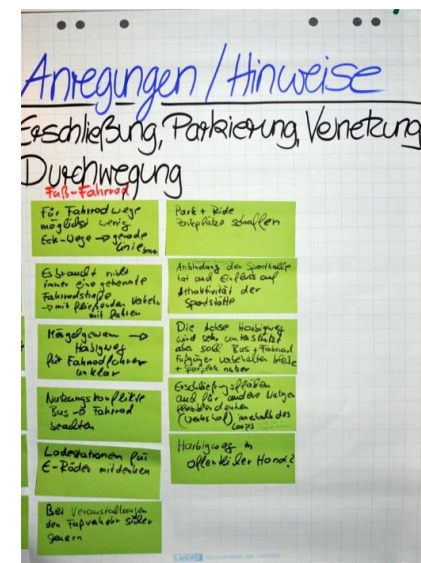 Anregungen / Hinweise
Erschließung, Parkierung, Vernetzung
Durchwegung
Fuß-Fahrrad
Für Fahrradwege
möglichst wenig
Eck-Wege → gerade
Linien
Es braucht nicht
immer eine getrennte
Fahrradstraße
→ mit fließenden Verkehr
mit fahren
→
Harbigweg
für Fahrradfahrer
unklar
Nutzungskonflikte
Bus → Fahrrad
beachten
Ladestationen für
E-Räder mitdenken
Bei Veranstaltungen
den Fußverkehr sicher
Park + Ride
Parkplätze schaffen
Anbindung der Sporthalle
hat auch Einfluss auf
Attraktivität der
Sportstätte
Die Achse Harbigweg
wird sehr
soll Bus + Fahrrad
Fußgänger vorbehalten
Erschließungsflächen
auch für andere Nutzungen
innerhalb des
Loops
Harbigweg in
öffentlicher Hand?